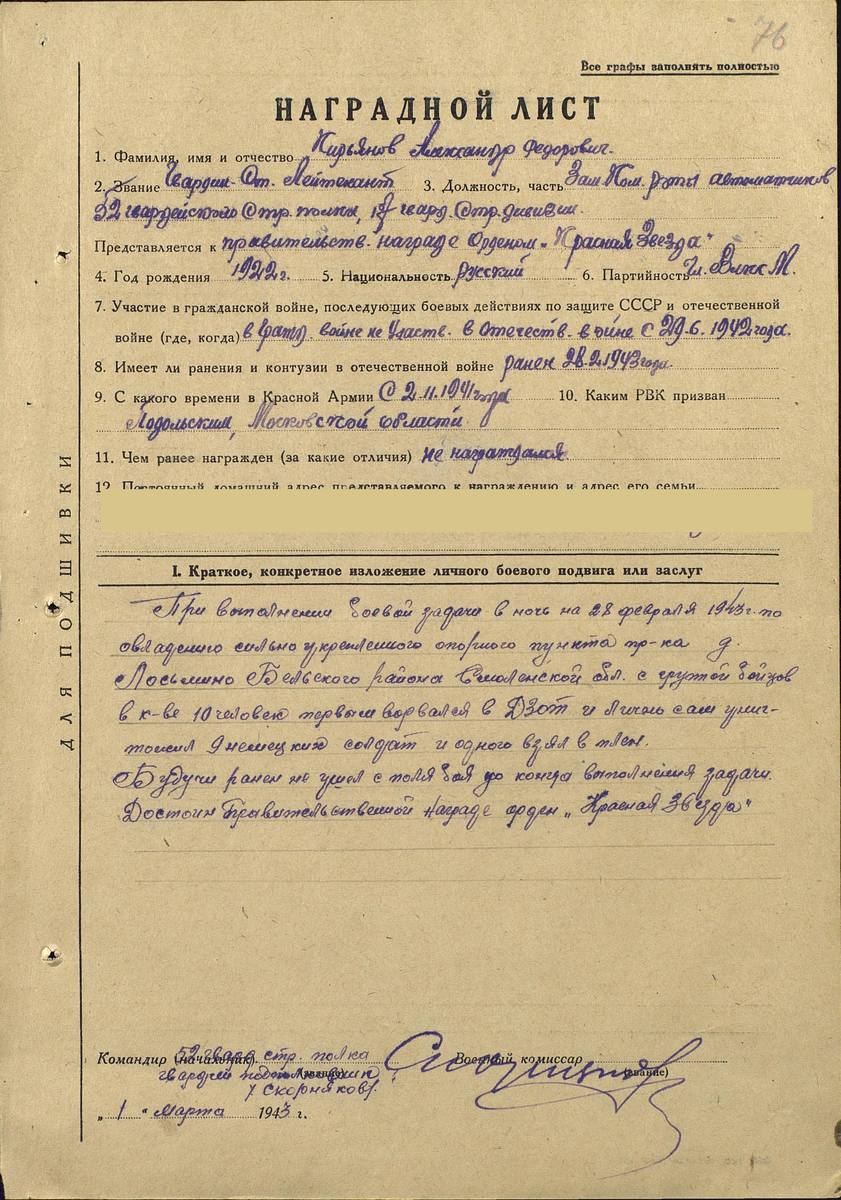 76
Все графы заполнять полностью
НАГРАДНОЙ ЛИСТ
1. Фамилия, имя и отчество Кирьянов Александр Федорович.
2. Звание Гвардии Ст. Лейтенант 3. Должность, часть Зам Ком. роты автоматчиков
52 гвардейского Стр. полка, 17 гвард. Стр. дивизии.
Представляется к правительств. награде Орденом „Красная Звезда"
4. Год рождения 1922 г. 5. Национальность русский 6. Партийность Чл. Влксм.
7. Участие в гражданской войне, последующих боевых действиях по защите СССР и отечественной
войне (где, когда) в войне не участв. в Отечеств. войне с 29.6.1942 года.
8. Имеет ли ранения и контузии в отечественной войне ранен 28.2.1943 года.
9. С какого времени в Красной Армии С 2.11.1941 года 10. Каким РВК призван
Подольским, Московской области.
11. Чем ранее награжден (за какие отличия) не награждался.
12. Постоянный домашний адрес представляемого к награждению и адрес его семьи
I. Краткое, конкретное изложение личного боевого подвига или заслуг
При выполнении боевой задачи в ночь на 28 февраля 1943 г. по
овладению сильно укрепленного опорного пункта пр-ка д.
Лосьмино Бельского района Смоленской обл. с группой бойцов
в к-ве 10 человек первым ворвался в ДЗОТ и лично сам унич-
тожил 9 немецких солдат и одного взял в плен.
Будучи ранен не ушел с поля боя до конца выполнения задачи.
Достоин Правительственной награде орден „Красная Звезда"
Командир (начальник) 52 гвард стр. полка Военный комиссар
гвардии (звание) (звание)
/ Скорняков /
„ 1 " Марта 1943 г.
ДЛЯ ПОДШИВКИ